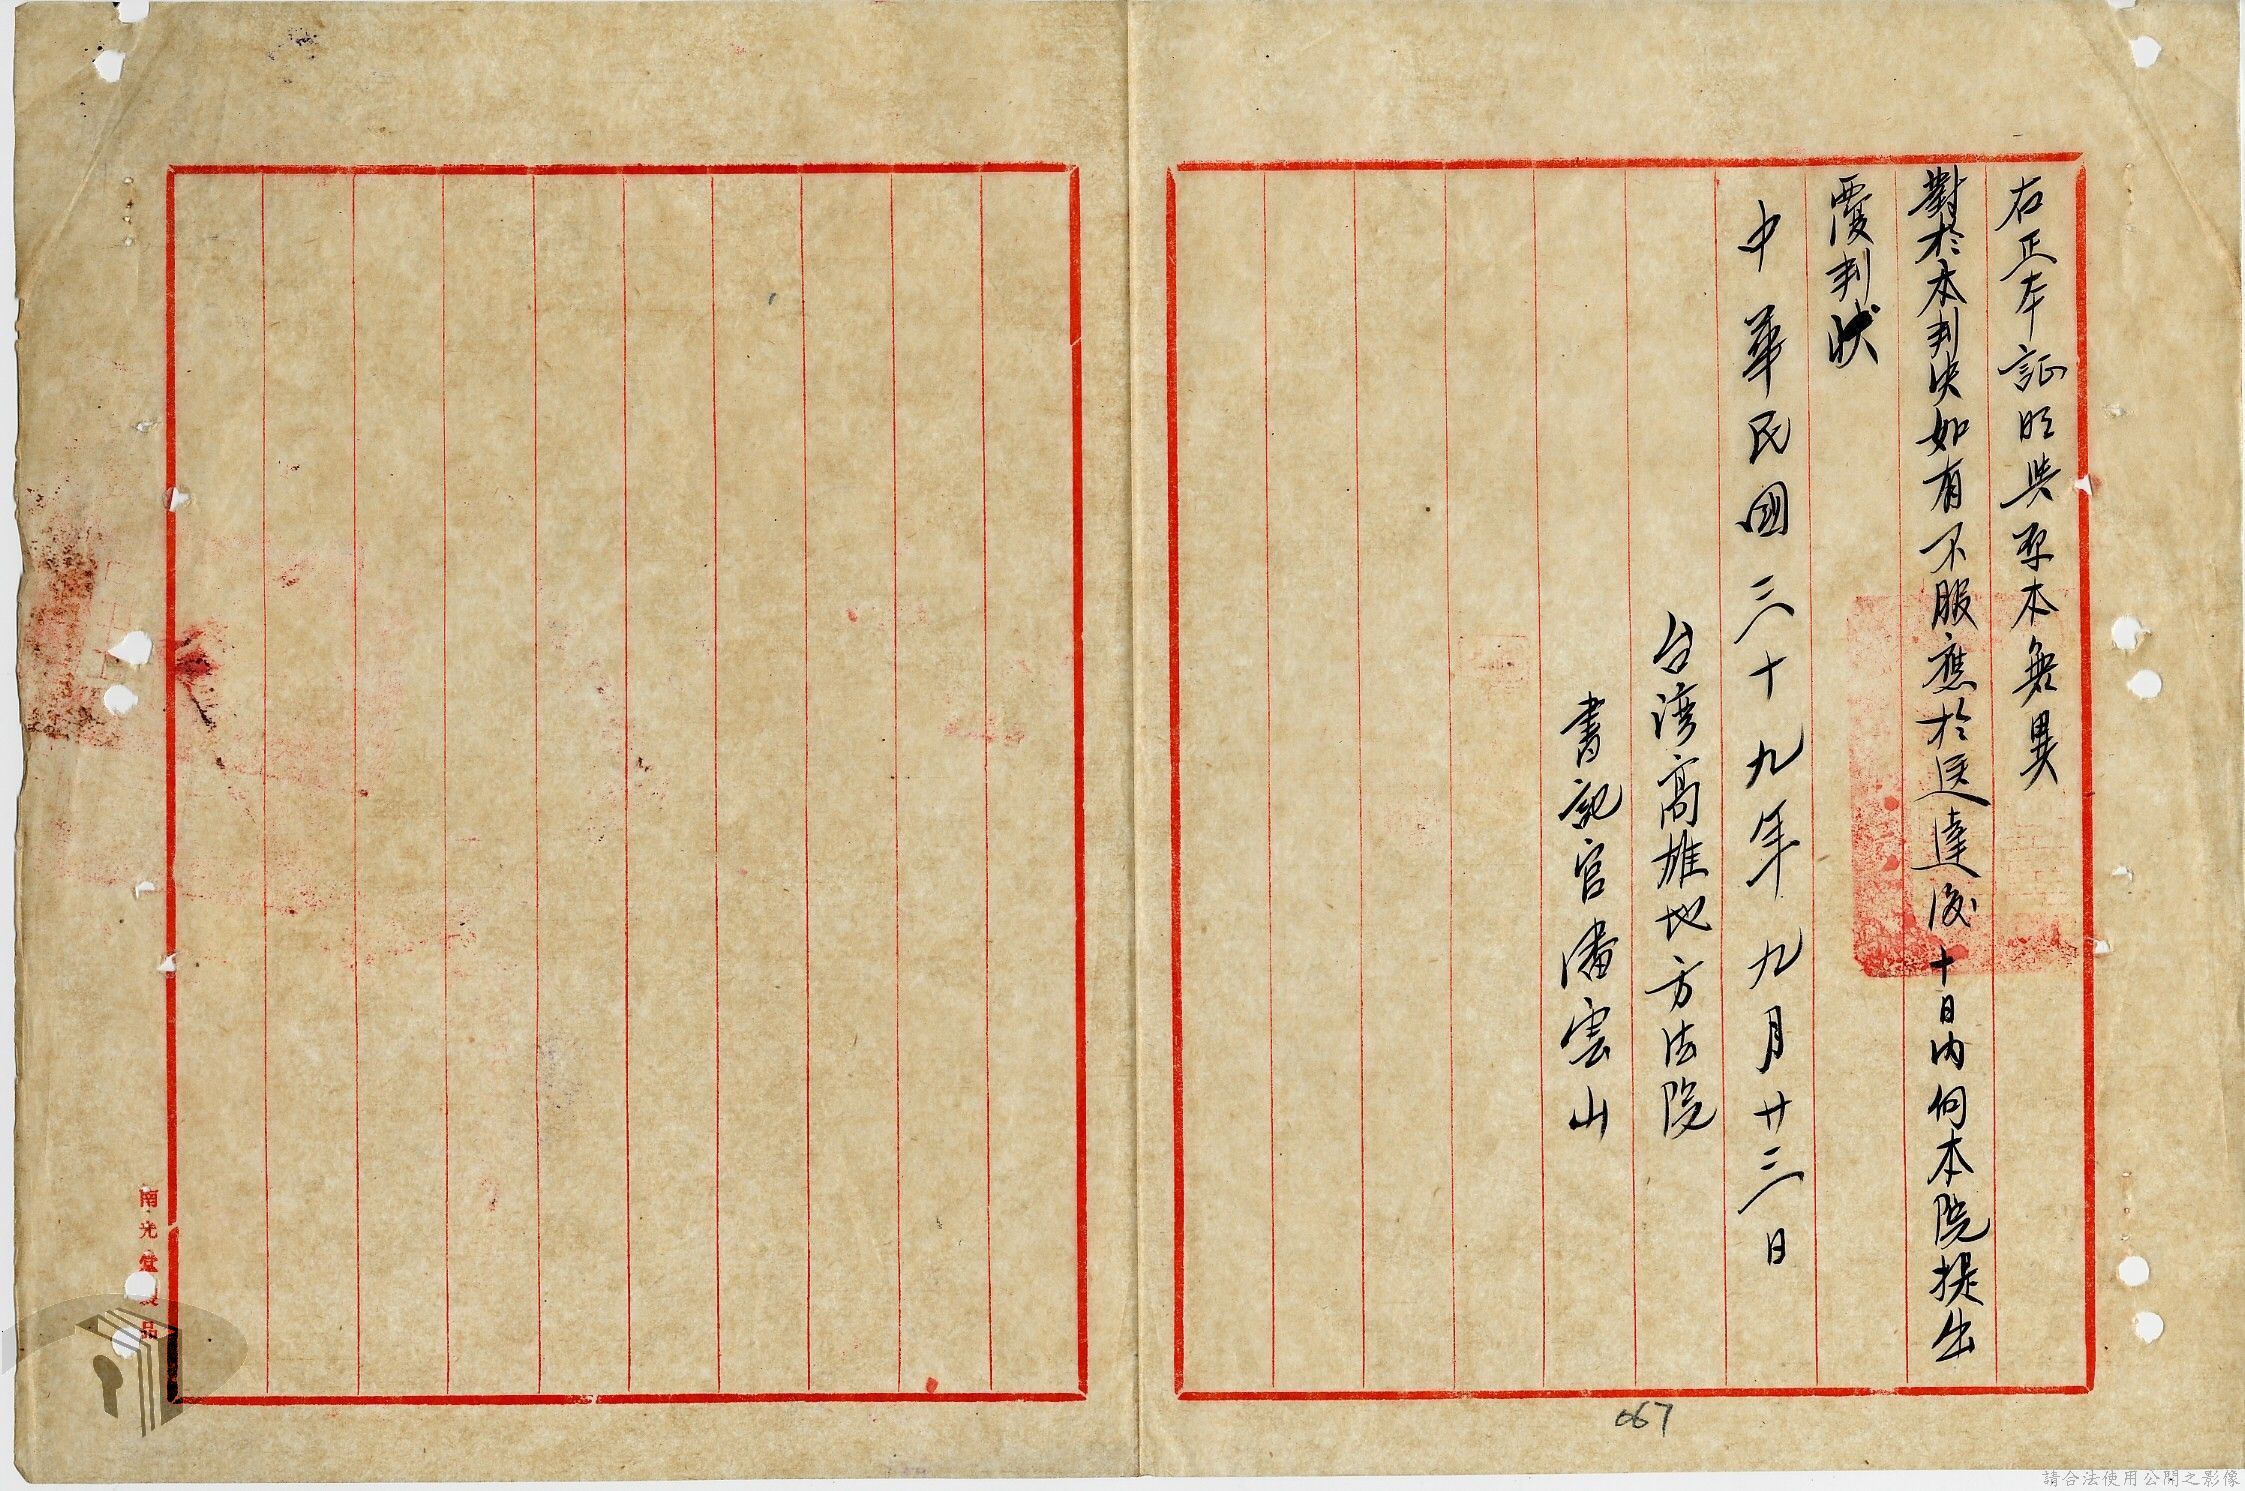 右正本証明與原本無異
對於本判決如有不服應於送達後十日內向本院提出
覆判狀
中華民國三十九年九月廿三日
台湾高雄地方法院
書記官潘雲山
067
南光堂製品
請合法使用公開之影像